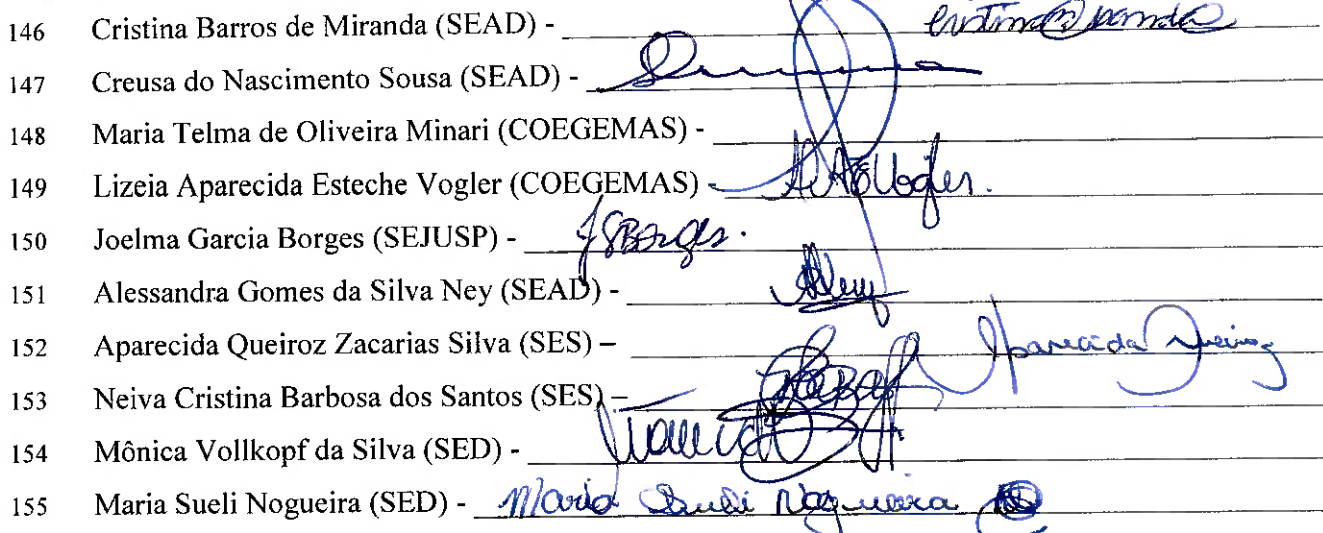 146 Cristina Barros de Miranda (SEAD) -
147 Creusa do Nascimento Sousa (SEAD) -
148 Maria Telma de Oliveira Minari (COEGEMAS) -
149 Lizeia Aparecida Esteche Vogler (COEGEMAS) - Vogler.
150 Joelma Garcia Borges (SEJUSP) - JGBorges.
151 Alessandra Gomes da Silva Ney (SEAD) -
152 Aparecida Queiroz Zacarias Silva (SES) – Aparecida Queiroz
153 Neiva Cristina Barbosa dos Santos (SES) –
154 Mônica Vollkopf da Silva (SED) -
155 Maria Sueli Nogueira (SED) - Maria Sueli Nogueira